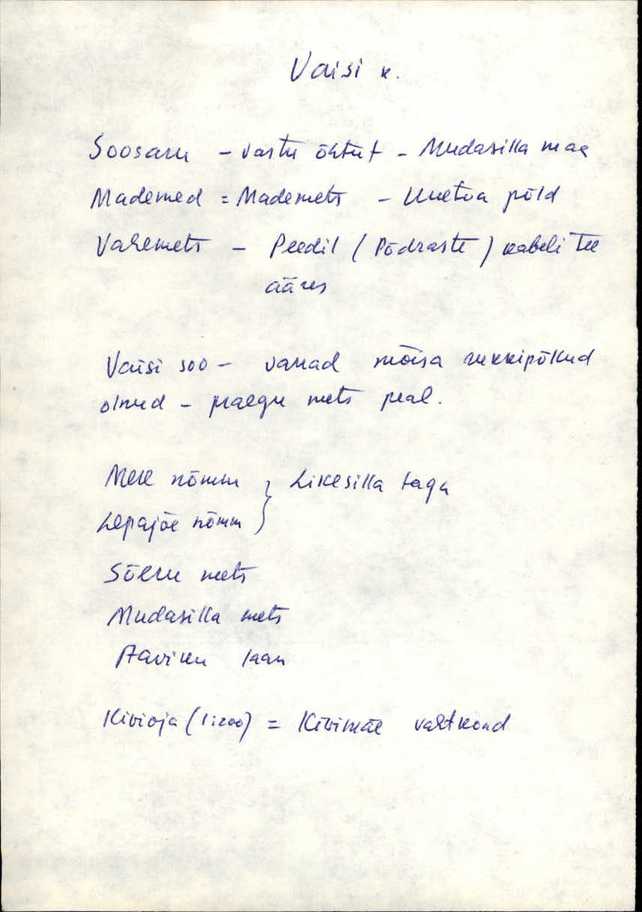 Vaisi k.
Soosaru - vastu õhtut - Mudasilla maa
Mademed = Mademets - põld
Varemets - Peedil (Põdraste) kabeli tee
ääres
Vaisi soo - vanad mõisa rukkipõllud
olnud - praegu mets peal.
Mere nõmm } Likesilla taga
Lepajõe nõmm
Sõeru mets
Mudasilla mets
Aaviku laan
Kivioja (1:200) = Kivimäe vahtkond